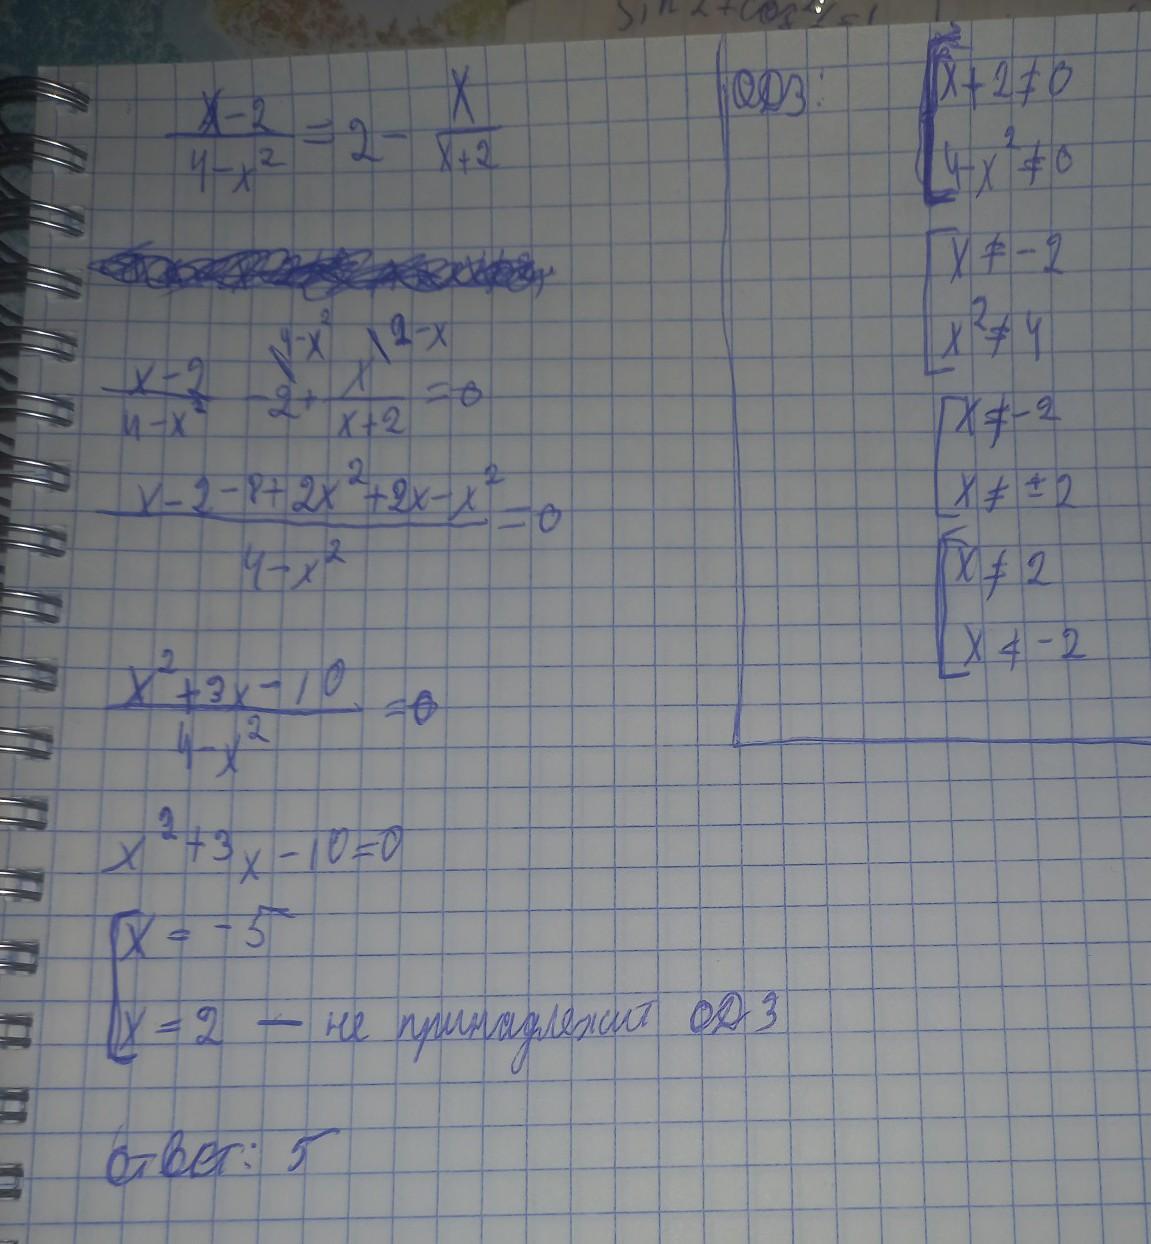 x-2/4-x² = 2 - x/x+2
x-2/4-x² -2\4-x² + x\2-x/x+2 = 0
x-2-8+2x²+2x-x²/4-x² = 0
x²+3x-10/4-x² = 0
x²+3x-10=0
[x = -5
x = 2 — не принадлежит ОДЗ
Ответ: 5
ОДЗ:
[x+2≠0
4-x²≠0
[x≠-2
x²≠4
[x≠-2
x≠±2
[x≠2
x≠-2